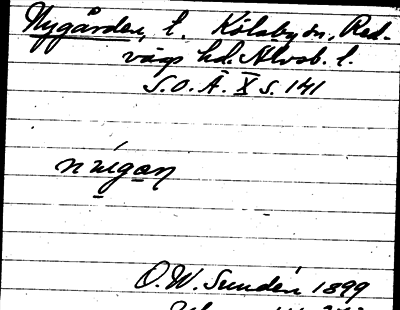 Nygården, l. Kölabyän, Red-
vägs hd. Älvsb. l.
S.O.Ä. X s. 141
O.W. Sundén 1899